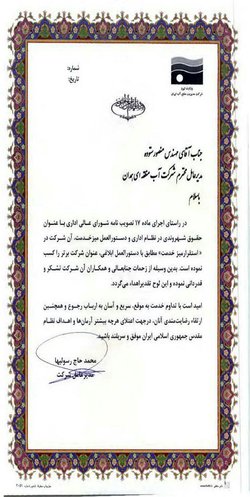 شماره:
تاریخ:
وزارت نیرو
شرکت مدیریت منابع آب ایران
جناب آقای مهندس منصور ستوده
مدیرعامل محترم شرکت آب منطقه ای همدان
با سلام
در راستای اجرای ماده ۱۷ تصویب نامه شورای عالی اداری با عنوان
حقوق شهروندی در نظام اداری و دستورالعمل میزخدمت، آن شرکت در
«استقرار میز خدمت» مطابق با دستورالعمل ابلاغی، عنوان شرکت برتر را کسب
نموده است. بدین وسیله از زحمات جنابعالی و همکاران آن شرکت تشکر و
قدردانی نموده و این لوح تقدیر اهداء می‌گردد.
امید است با تداوم خدمت به موقع، سریع و آسان به ارباب رجوع و همچنین
ارتقاء رضایت‌مندی آنان، درجهت اعتلای هرچه بیشتر آرمان‌ها و اهداف نظام
مقدس جمهوری اسلامی ایران موفق و سربلند باشید.
محمد حاج رسولیها
مدیرعامل شرکت